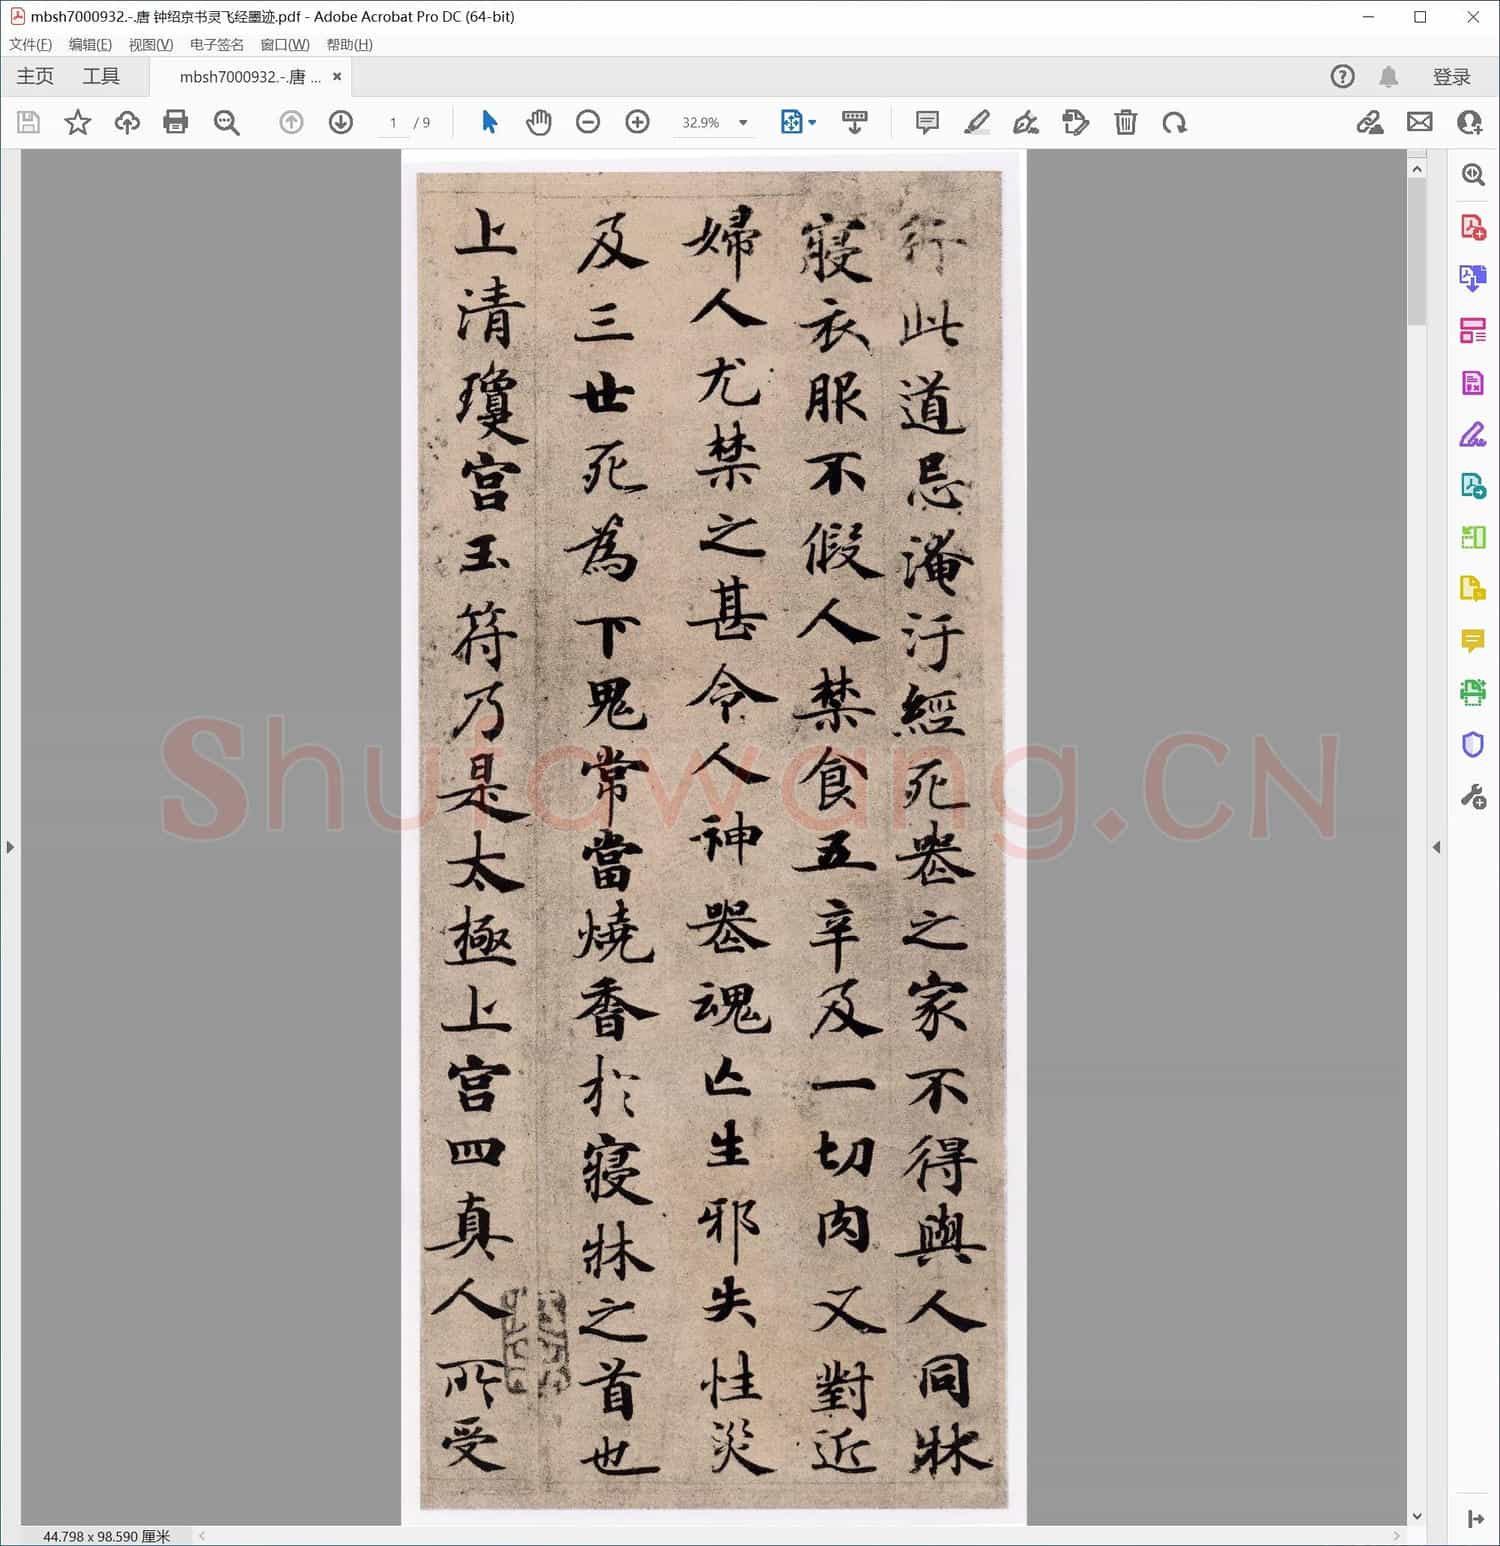 mbsh7000932.-.唐 钟绍京书灵飞经墨迹.pdf - Adobe Acrobat Pro DC (64-bit)
文件(F) 编辑(E) 视图(V) 电子签名 窗口(W) 帮助(H)
主页 工具 mbsh7000932.-.唐 ... × 登录
1 / 9 32.9%
行此道忌淹汙經死喪之家不得與人同牀
寢衣服不假人禁食五辛及一切肉又對近
婦人尤禁之甚令人神喪魂亡生邪失性災
及三世死為下鬼常當燒香於寢牀之首也
上清瓊宮玉符乃是太極上宮四真人所受
Shufawang.CN
44.798 x 98.590 厘米